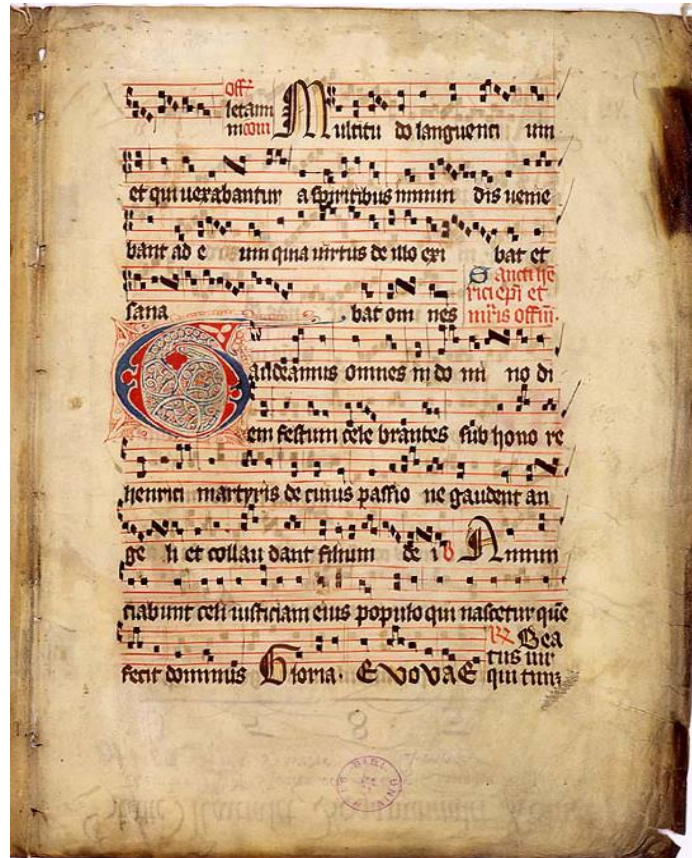 off
letamı
m com Multitu do languenti um
et qui uexabantur a spiritibus inmun dis uenie
bant ad e um quia uirtus de illo exi bat et
Sancti hē
rici epi et
sana bat om nes mris offm.
Gaudeamus omnes in do mi no di
em festum cele brantes sub hono re
henrici martyris de cuius passio ne gaudent an
ge li et collau dant filium de i Annun
ciabunt celi iusticiam eius populo qui nascetur quē
Bea
tus uir
fecit dominus Gloria. EVOVAE qui tim